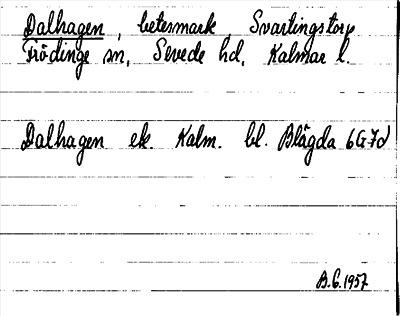 Dalhagen, betesmark, Svartingstorp
Frödinge sn, Sevede hd, Kalmar l.
Dalhagen ek. Kalm. bl. Blågda 6G7d
B.G. 1957